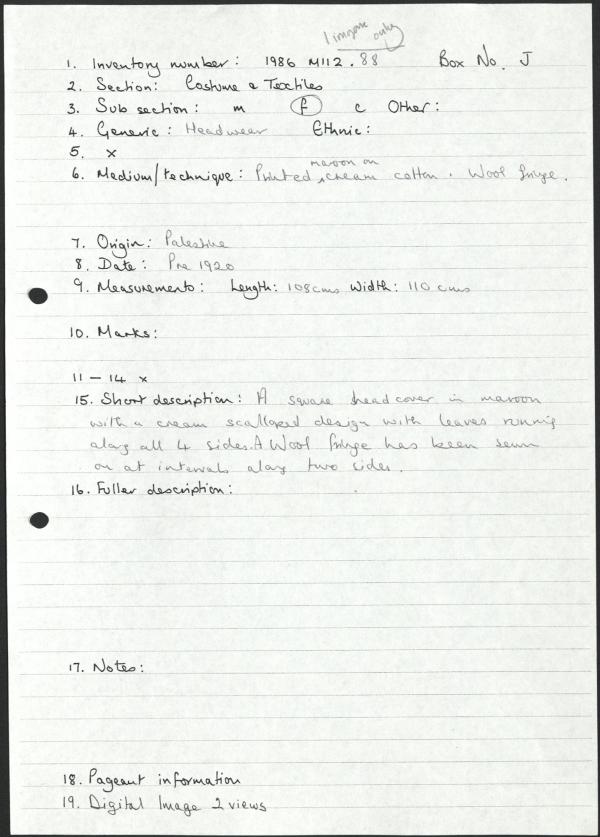 1 image only
1. Inventory number: 1986 M112.88 Box No. J
2. Section: Costume & Textiles
3. Sub section: m f c Other:
4. Generic: Headwear Ethnic:
5. x
maroon on
6. Medium/technique: Printed cream cotton. Wool fringe.
7. Origin: Palestine
8. Date: Pre 1920
9. Measurements: Length: 108cms Width: 110 cms
10. Marks:
11 – 14 x
15. Short description: A square headcover in maroon
with a cream scalloped design with leaves running
along all 4 sides. A Wool fringe has been sewn
on at intervals along two sides.
16. Fuller description:
17. Notes:
18. Pageant information
19. Digital Image 2 views